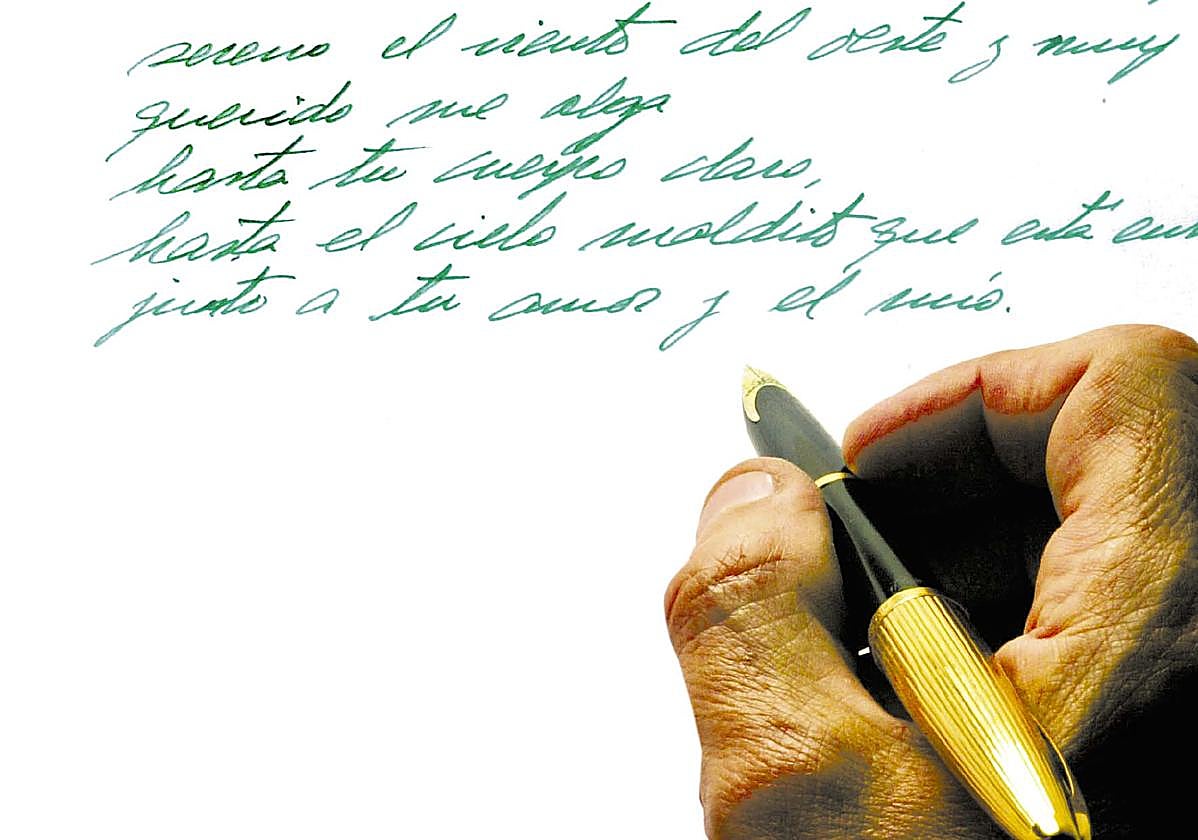 sereno el viento del oeste y muy
querido me aloja
hasta tu cuerpo claro,
hasta el cielo maldito que está
junto a tu amor y el mío.